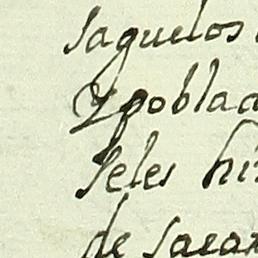 saguelos
y poblad
seles hi
de sacar